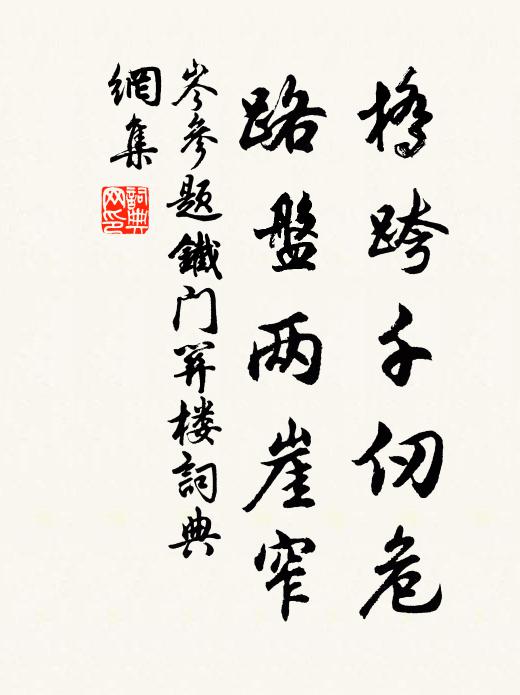 橋跨千仞危
路盤两崖窄
岑參題鐵门関楼詞典
網集
詞典
网印